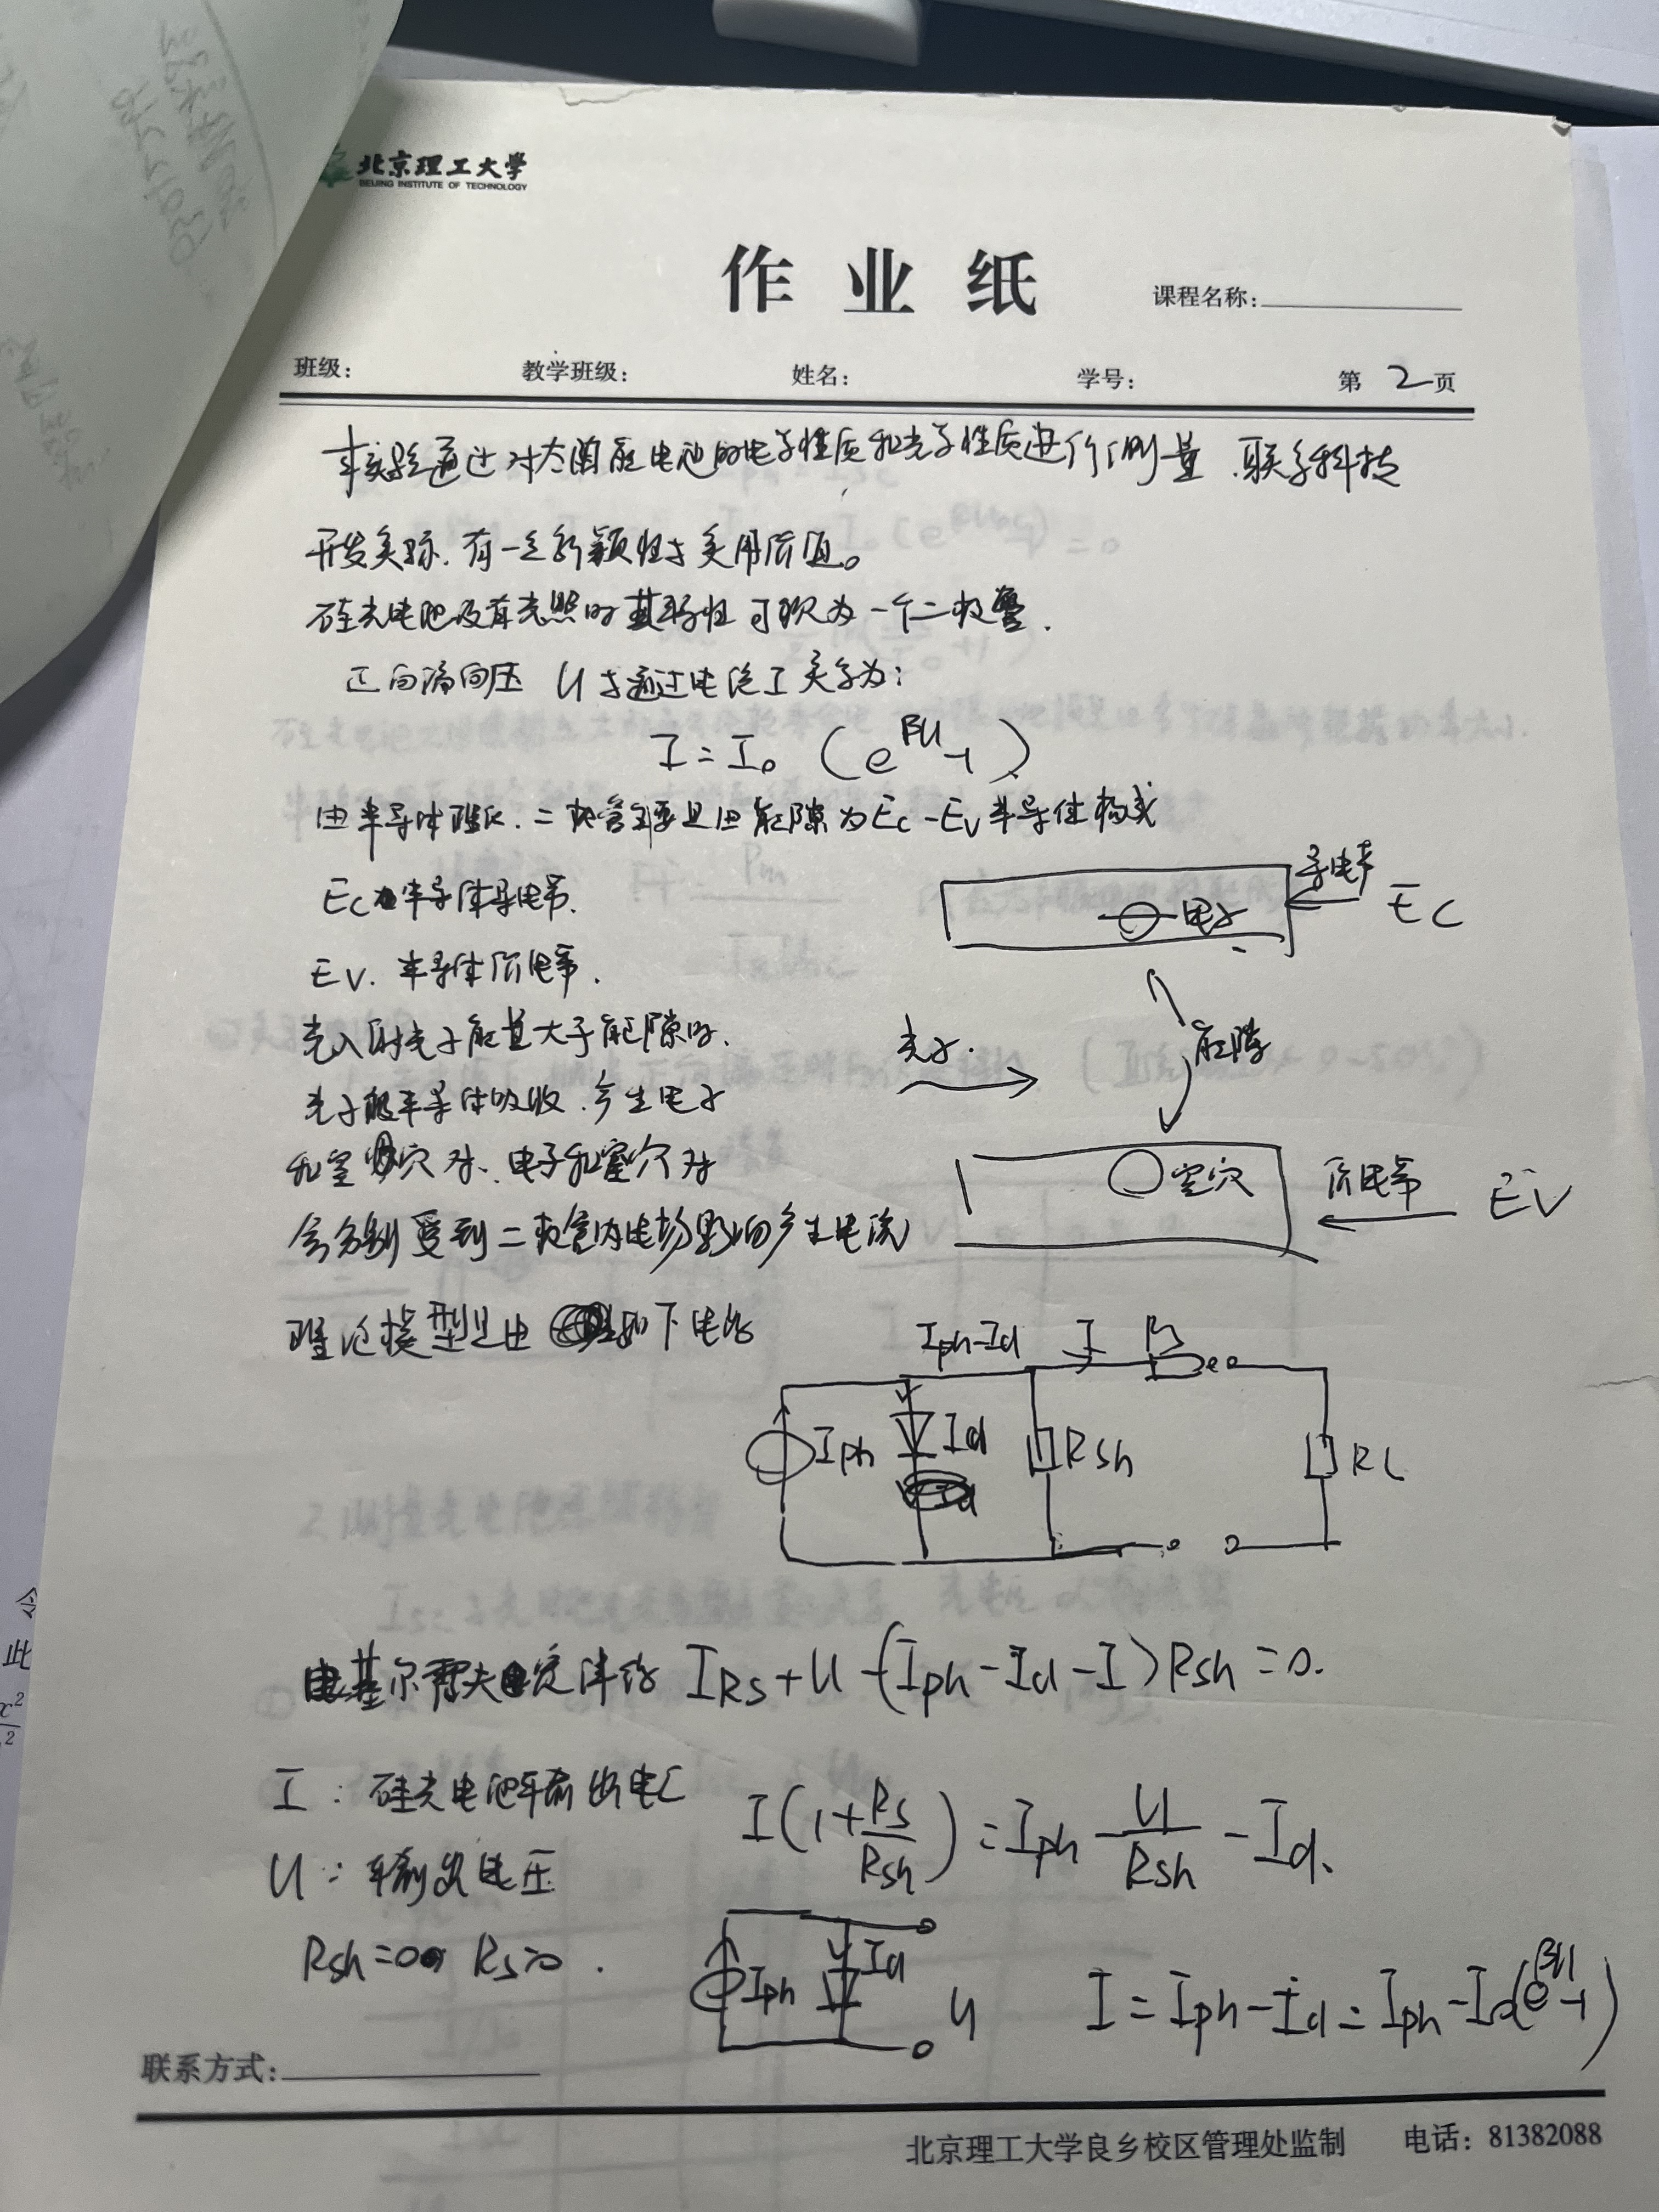 北京理工大学
BEIJING INSTITUTE OF TECHNOLOGY
作业纸
课程名称:
班级: 教学班级: 姓名: 学号: 第 2 页
本实验通过对太阳能电池的电学性质和光学性质进行测量.联系科技
开发实际.有一定新颖性与实用价值。
硅光电池没有光照时其特性可视为一个二极管.
正向偏向压 U与通过电流I关系为:
I=I₀(e^{βU}-1)
由半导体理论.二极管主要是由能隙为Ec-Ev半导体构成
Ec为半导体导电带.
Ev.半导体价电带.
光入射光子能量大于能隙时.
光子被半导体吸收.产生电子
和空穴对.电子和空穴对
会分别受到二极管内电场影响产生电流
导电带 Ec
电子
光子.
能隙
空穴
价电带 Ev
理论模型是由如下电路
Iph-Id I Rs
Iph Id Rsh RL
由基尔霍夫定律得 IRs+U-(Iph-Id-I)Rsh=0.
I:硅光电池输出电
U:输出电压
I(1+Rs/Rsh)=Iph-U/Rsh-Id.
Rsh=∞ Rs=0.
Iph Id U
I=Iph-Id=Iph-I₀(e^{βU}-1)
联系方式:
北京理工大学良乡校区管理处监制 电话:81382088
令
此
x²